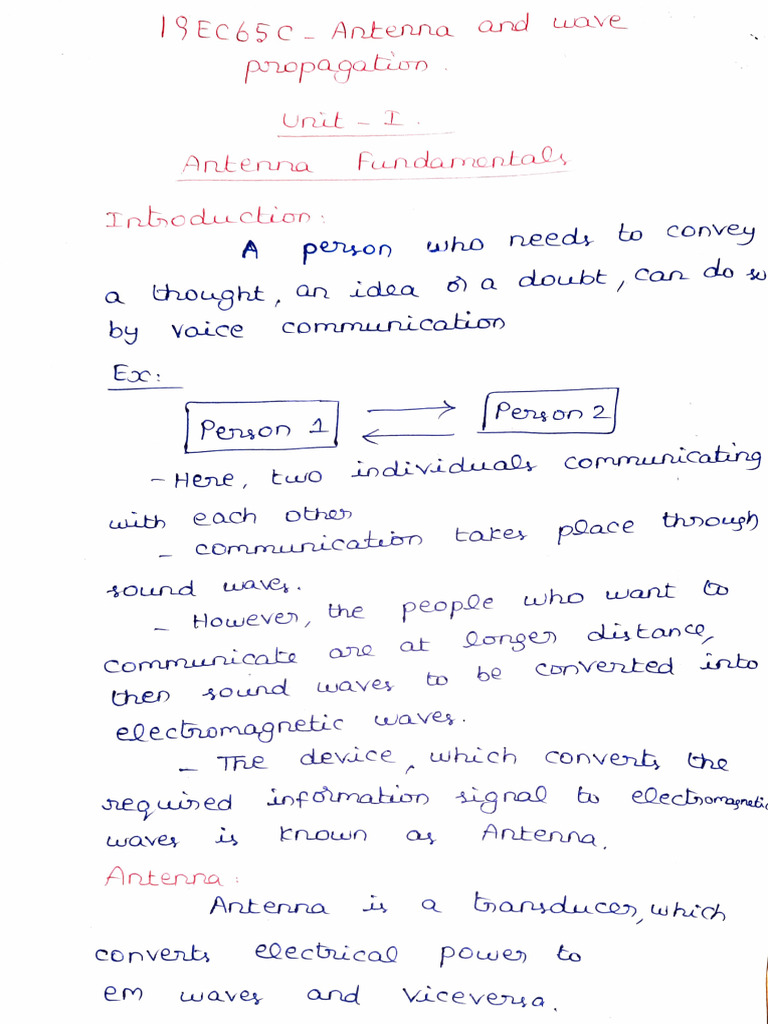 19EC65C - Antenna and wave
propagation.
Unit - I.
Antenna Fundamentals
Introduction:
A person who needs to convey
a thought, an idea or a doubt, can do so
by voice communication
Ex:
Person 1
Person 2
- Here, two individuals communicating
with each other
- communication takes place through
sound waves.
- However, the people who want to
communicate are at longer distance,
then sound waves to be converted into
electromagnetic waves.
- The device, which converts the
required information signal to electromagnetic
waves is known as Antenna.
Antenna:
Antenna is a transducer, which
converts electrical power to
em waves and viceversa.